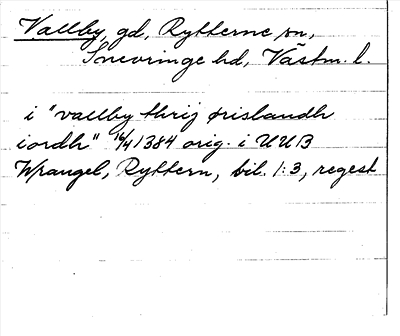 Vallby, gd, Rytterne sn,
Snevringe hd, Västm. l.
i "vallby thrij örislandh
iordh" 16/4 1384 orig. i UUB
Wrangel, Ryttern, bil. 1:3, regest